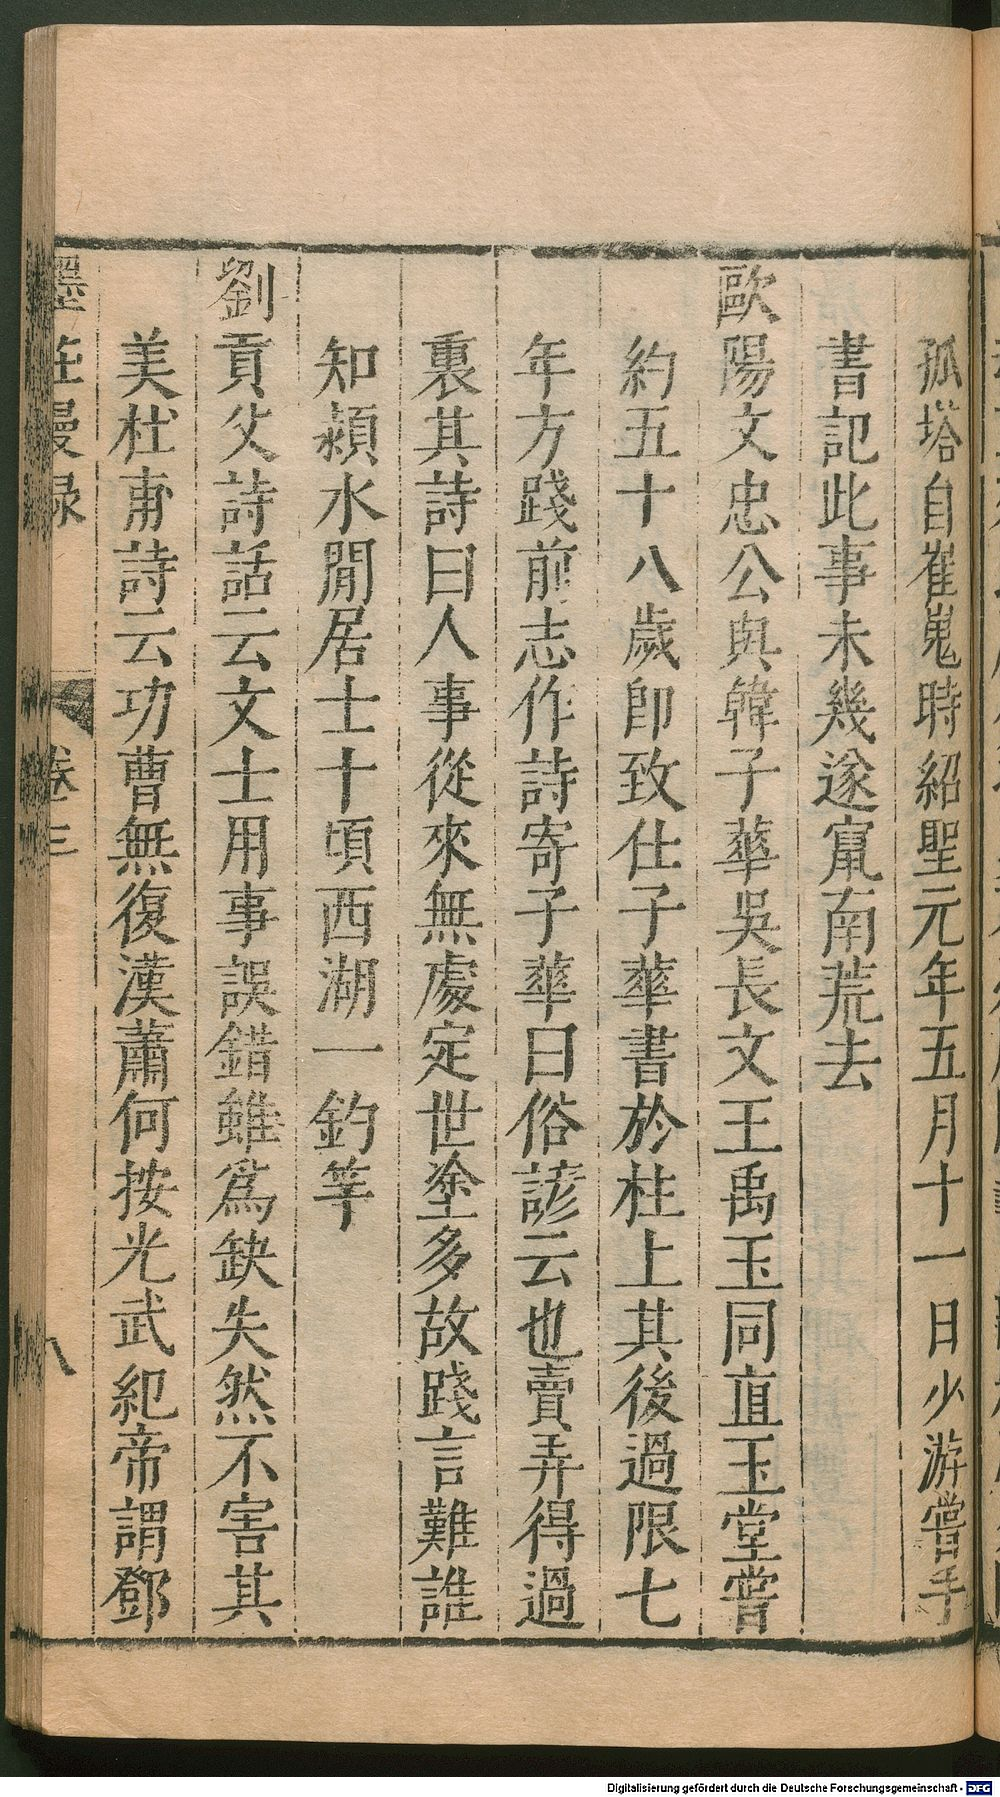 孤塔自崔嵬時紹聖元年五月十一日少游嘗手
書記此事未幾遂竄南荒去
歐陽文忠公與韓子華吳長文王禹玉同直玉堂嘗
約五十八歲即致仕子華書於柱上其後過限七
年方踐前志作詩寄子華曰俗諺云也賣弄得過
裏其詩曰人事從來無處定世塗多故踐言難誰
知潁水閒居士十頃西湖一釣竿
劉貢父詩話云文士用事誤錯雖為缺失然不害其
美杜甫詩云功曹無復漢蕭何按光武紀帝謂鄧
墨莊漫錄 卷三 八
Digitalisierung gefördert durch die Deutsche Forschungsgemeinschaft - DFG